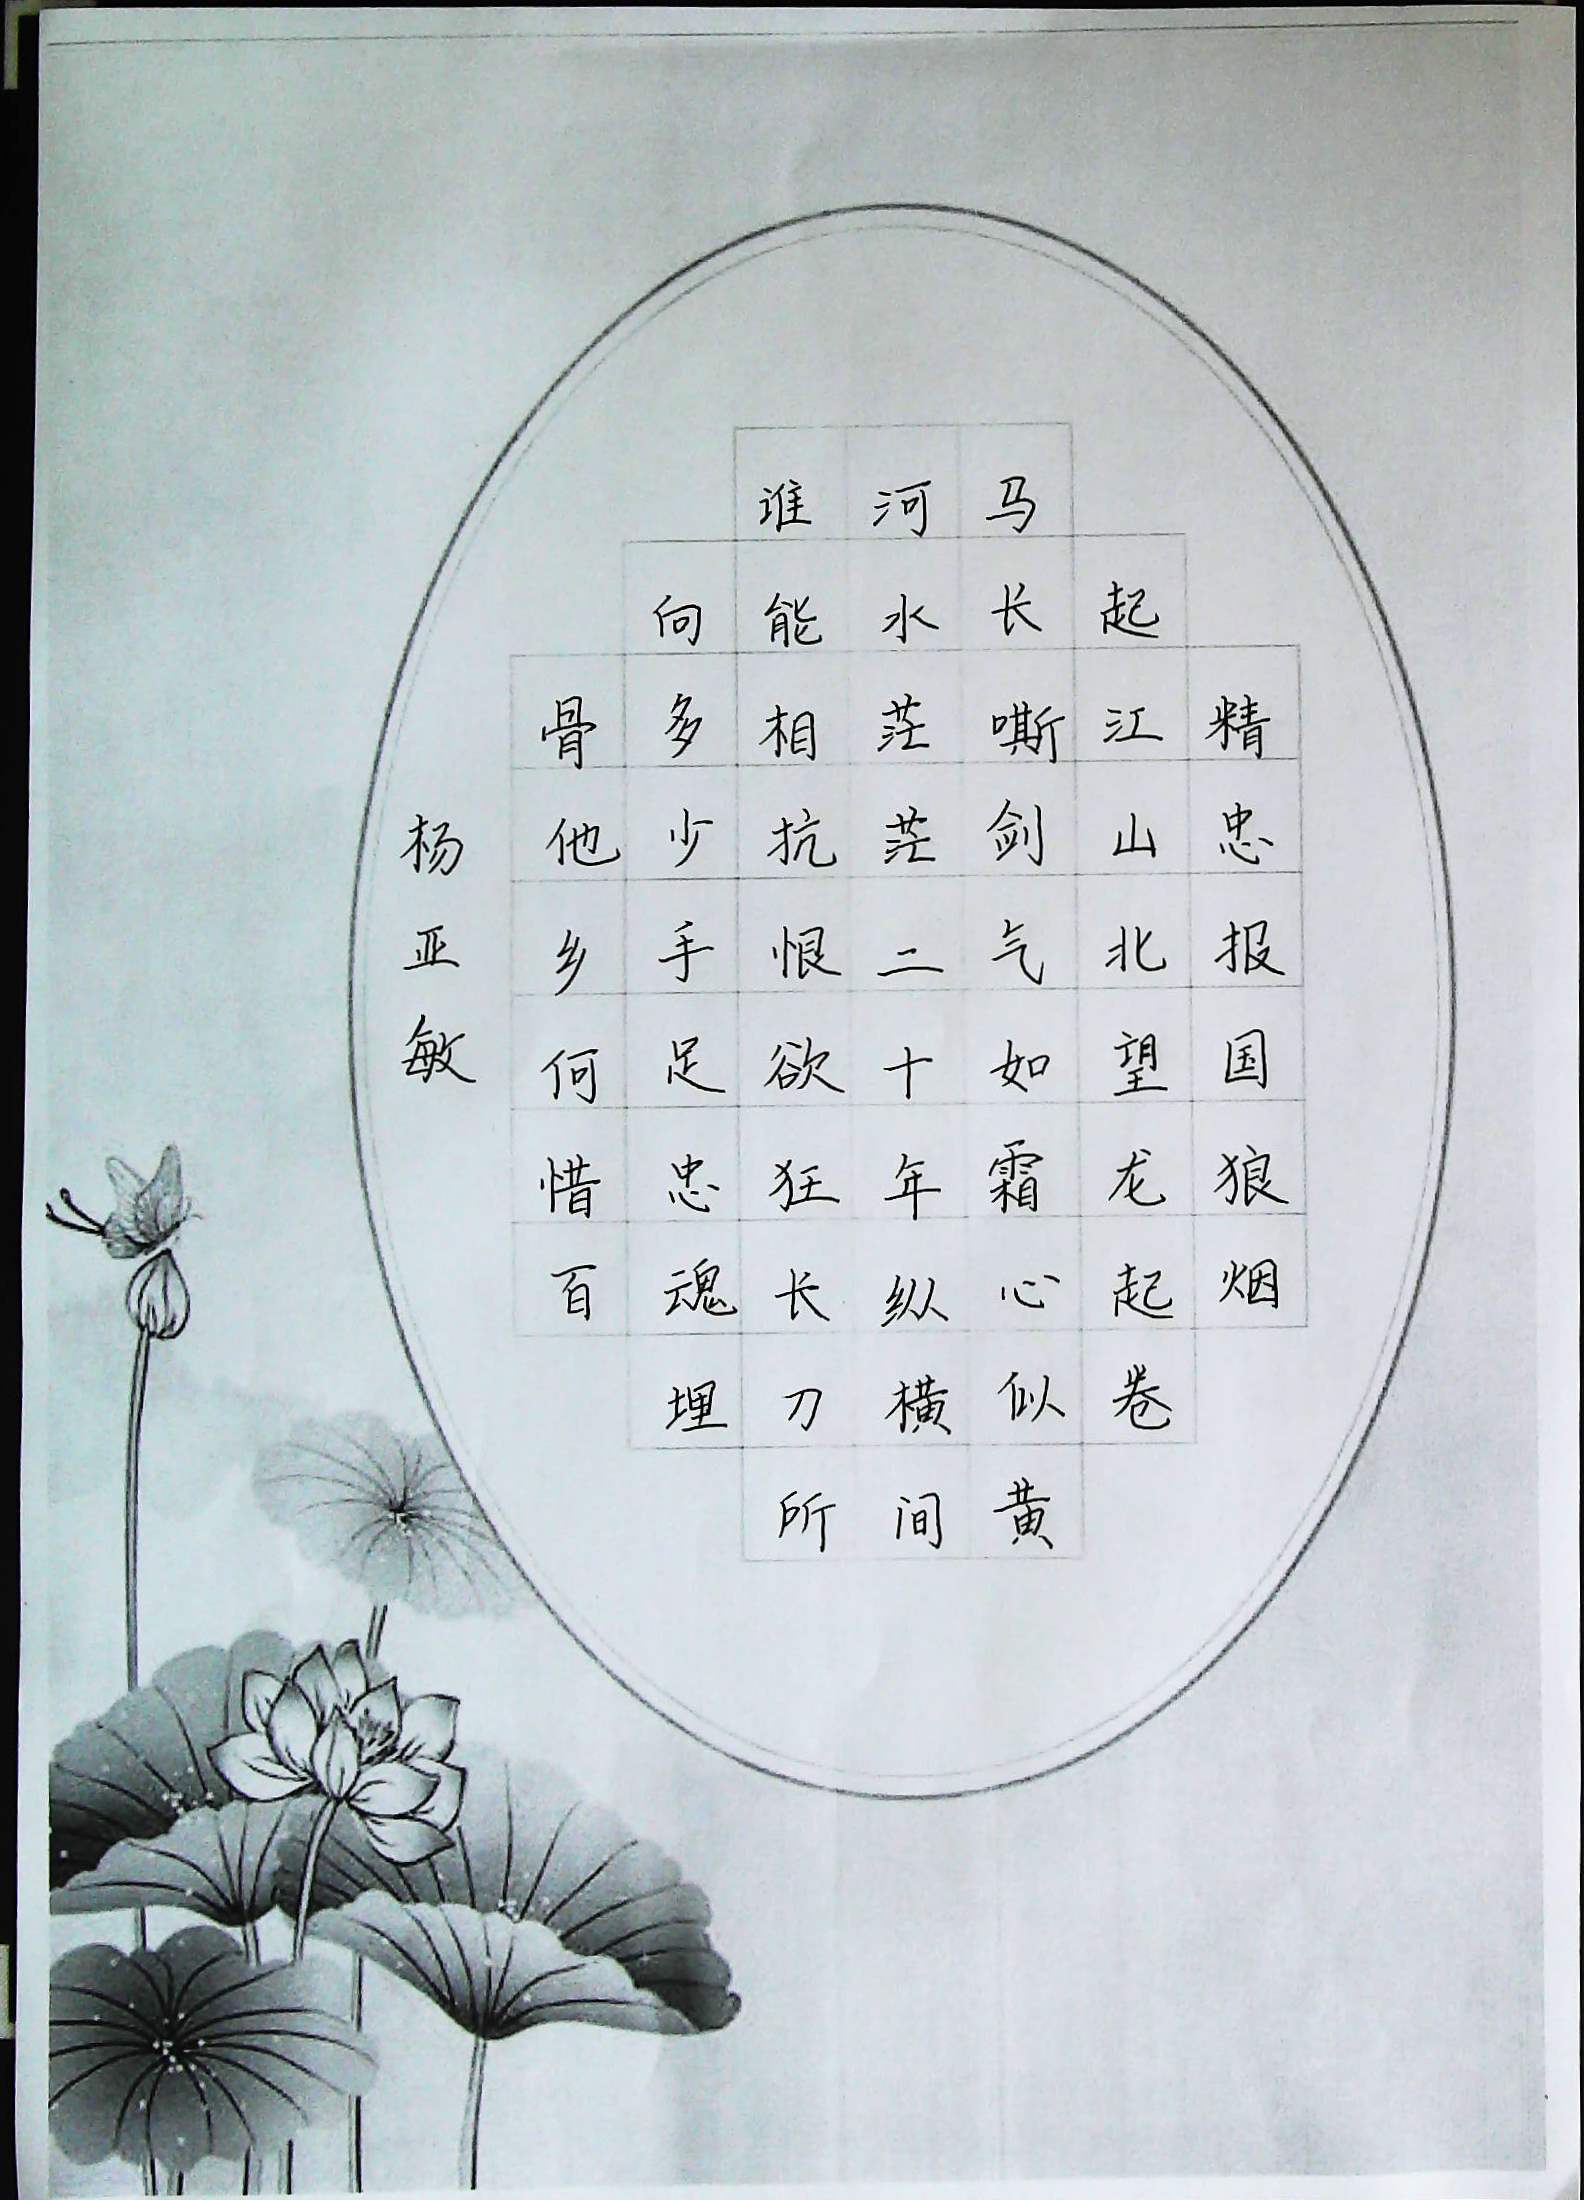 精忠报国狼烟
起江山北望龙起卷
马长嘶剑气如霜心似黄
河水茫茫二十年纵横间
谁能相抗恨欲狂长刀所
向多少手足忠魂埋
骨他乡何惜百
杨亚敏